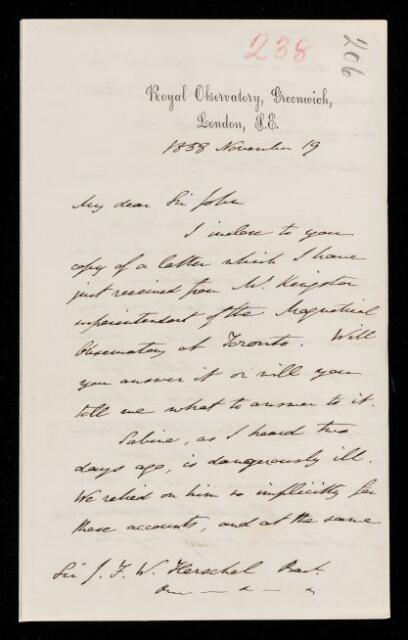 238
206
Royal Observatory, Greenwich,
London, S.E.
1858 November 19
My dear Sir John
I inclose to you
copy of a letter which I have
just received from Mr. Kingston
superintendent of the Magnetical
Observatory at Toronto. Will
you answer it or will you
tell me what to answer to it.
Sabine, as I heard two
days ago, is dangerously ill.
We relied on him so implicitly for
these accounts, and at the same
Sir J. F. W. Herschel Bart.